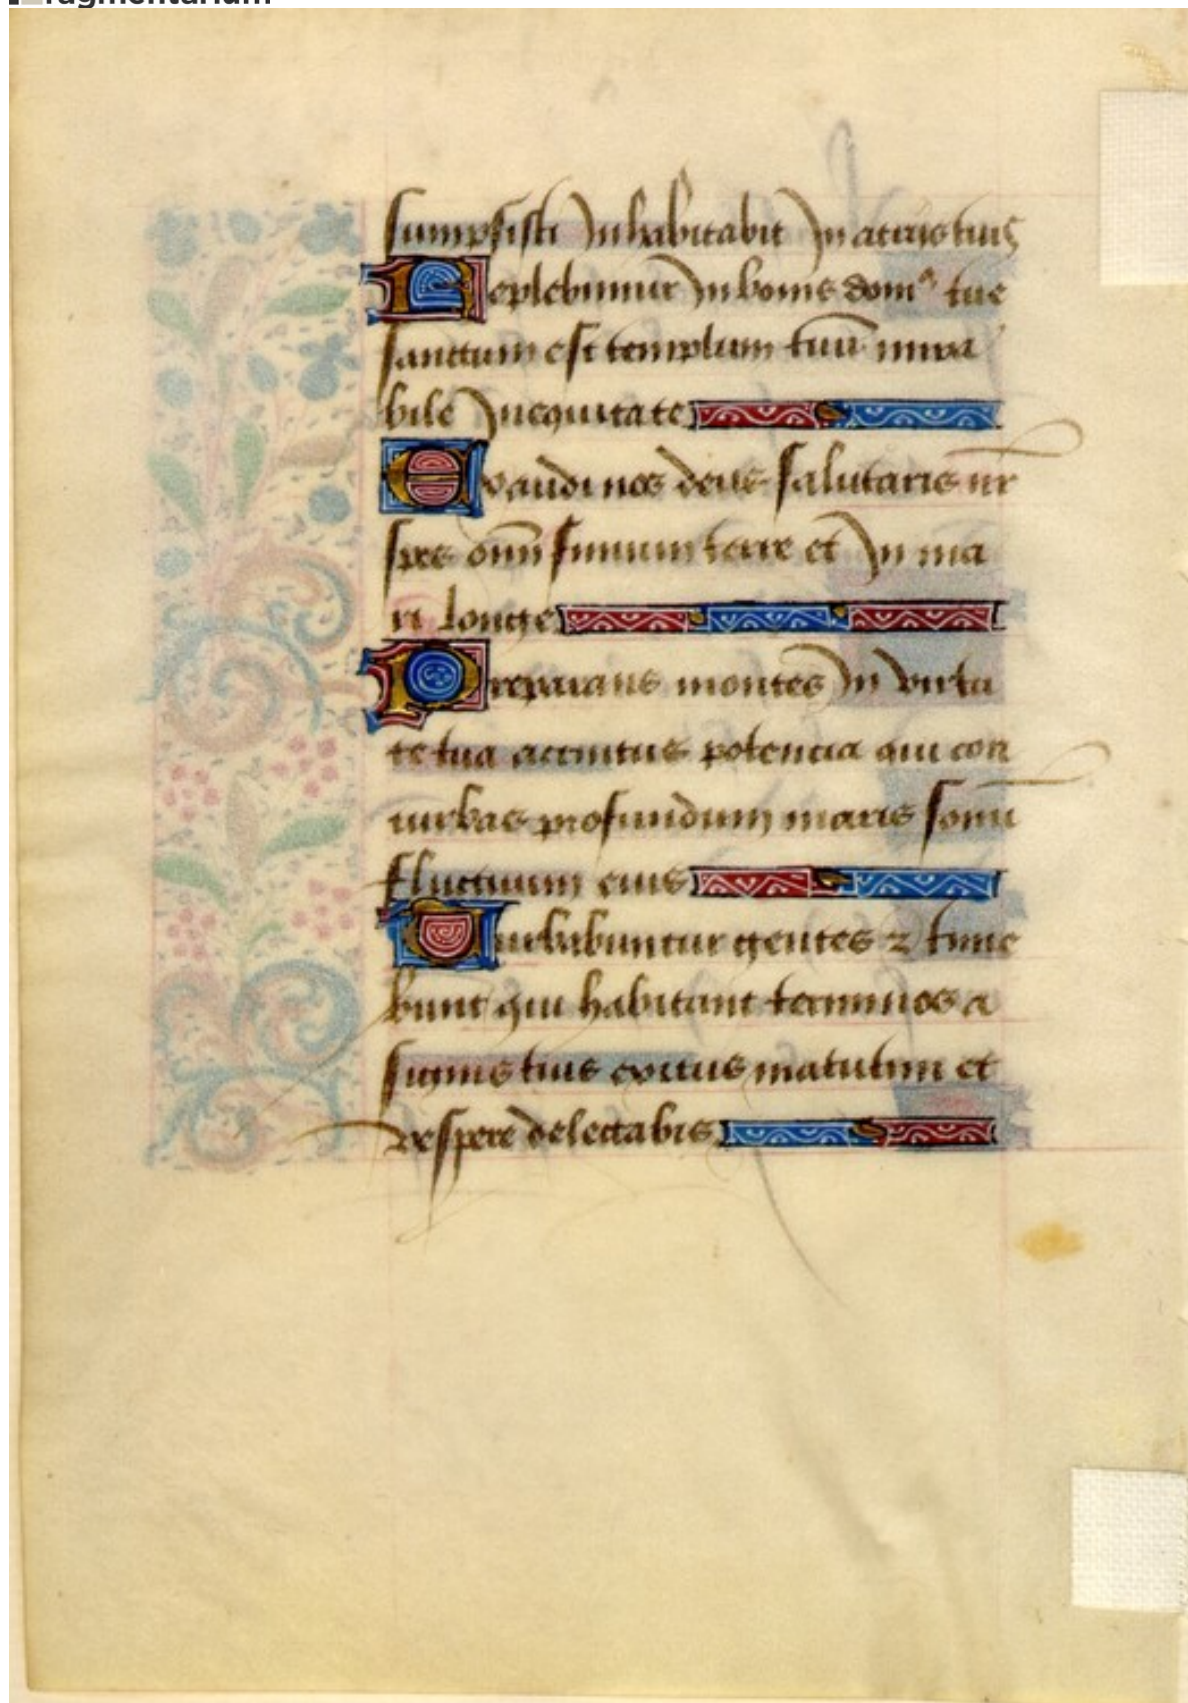 fragmentarium
sumpsisti Inhabitabit In atriis tuis
Replebimur In bonis domᵃ tue
sanctum est templum tuū mira
bile In equitate
Exaudi nos deus salutaris nr̄
spes om̄ finium terre et In ma
ri longe
Preparans montes In virtu
te tua accinctus potencia qui con
turbas profundum maris sonū
fluctuum eius
Turbabuntur gentes ⁊ time
bunt qui habitant terminos a
signis tuis exitus matutini et
vespere delectabis